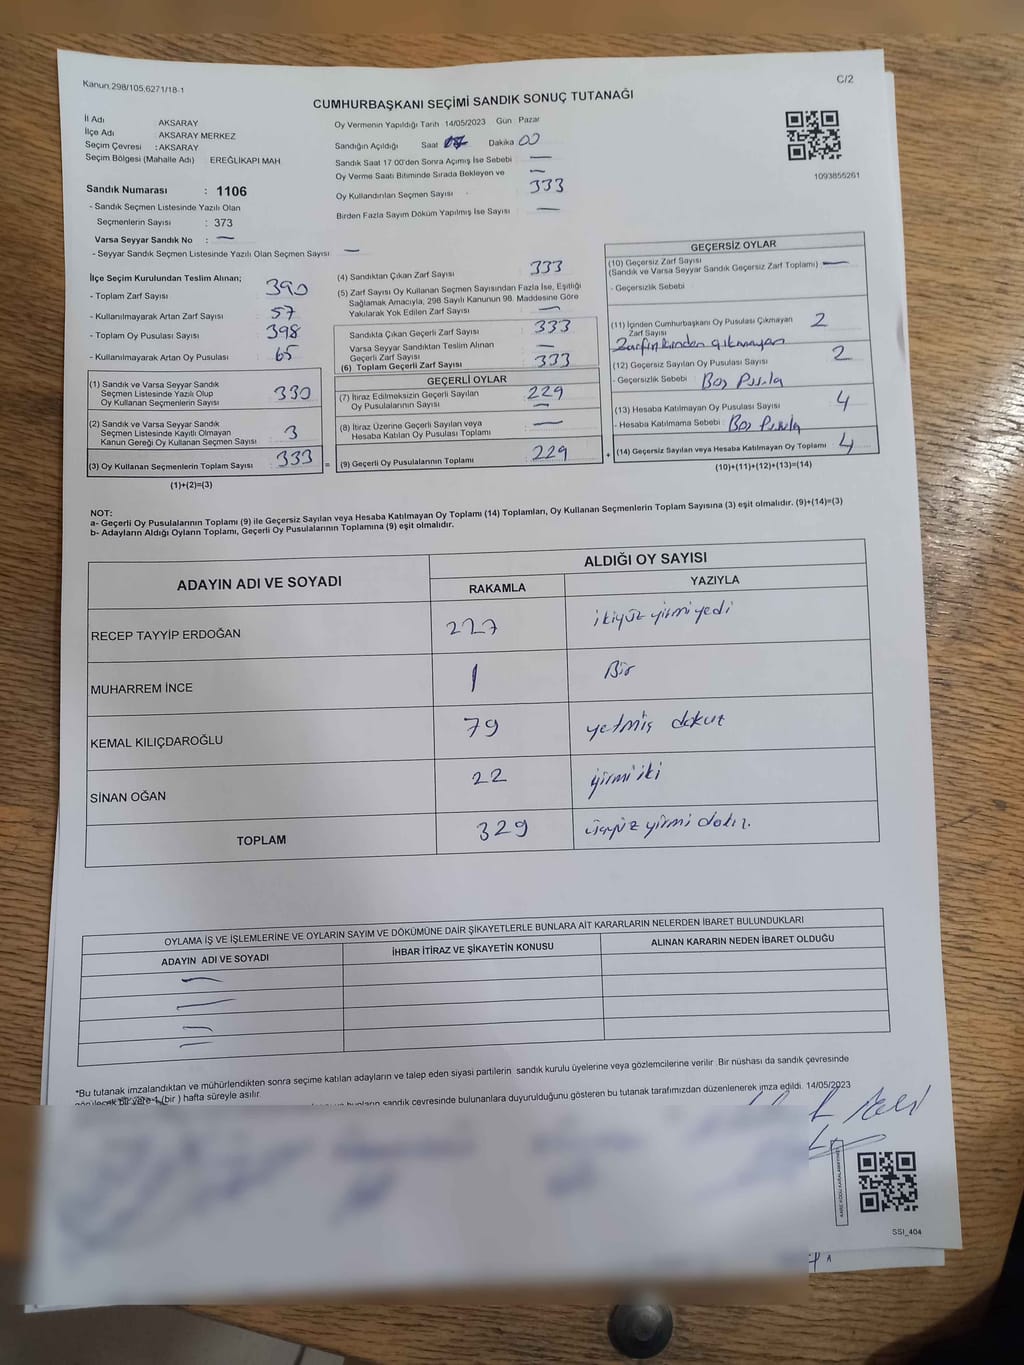 Kanun.298/105,6271/18-1
C/2
CUMHURBAŞKANI SEÇİMİ SANDIK SONUÇ TUTANAĞI
İl Adı AKSARAY
İlçe Adı AKSARAY MERKEZ
Seçim Çevresi : AKSARAY
Seçim Bölgesi (Mahalle Adı) : EREĞLİKAPI MAH
Sandık Numarası : 1106
- Sandık Seçmen Listesinde Yazılı Olan
Seçmenlerin Sayısı : 373
Varsa Seyyar Sandık No : —
- Seyyar Sandık Seçmen Listesinde Yazılı Olan Seçmen Sayısı : —
Oy Vermenin Yapıldığı Tarih 14/05/2023 Gün : Pazar
Sandığın Açıldığı Saat Dakika 00
Sandık Saat 17 00'den Sonra Açımış İse Sebebi —
Oy Verme Saati Bitiminde Sırada Bekleyen ve —
Oy Kullandırılan Seçmen Sayısı 333
Birden Fazla Sayım Döküm Yapılmış İse Sayısı —
1093855261
İlçe Seçim Kurulundan Teslim Alınan;
- Toplam Zarf Sayısı 390
- Kullanılmayarak Artan Zarf Sayısı 57
- Toplam Oy Pusulası Sayısı 398
- Kullanılmayarak Artan Oy Pusulası 65
(1) Sandık ve Varsa Seyyar Sandık
Seçmen Listesinde Yazılı Olup
Oy Kullanan Seçmenlerin Sayısı 330
(2) Sandık ve Varsa Seyyar Sandık
Seçmen Listesinde Kayıtlı Olmayan
Kanun Gereği Oy Kullanan Seçmen Sayısı 3
(3) Oy Kullanan Seçmenlerin Toplam Sayısı 333 =
(1)+(2)=(3)
(4) Sandıktan Çıkan Zarf Sayısı 333
(5) Zarf Sayısı Oy Kullanan Seçmen Sayısından Fazla İse, Eşitliği
Sağlamak Amacıyla, 298 Sayılı Kanunun 98. Maddesine Göre
Yakılarak Yok Edilen Zarf Sayısı —
Sandıkta Çıkan Geçerli Zarf Sayısı 333
Varsa Seyyar Sandıktan Teslim Alınan
Geçerli Zarf Sayısı —
(6) Toplam Geçerli Zarf Sayısı 333
GEÇERLİ OYLAR
(7) İtiraz Edilmeksizin Geçerli Sayılan 229
Oy Pusulasının Sayısı —
(8) İtiraz Üzerine Geçerli Sayılan veya
Hesaba Katılan Oy Pusulası Toplamı —
(9) Geçerli Oy Pusulalarının Toplamı 229 +
GEÇERSİZ OYLAR
(10) Geçersiz Zarf Sayısı
(Sandık ve Varsa Seyyar Sandık Geçersiz Zarf Toplamı) —
- Geçersizlik Sebebi
(11) İçinden Cumhurbaşkanı Oy Pusulası Çıkmayan
Zarf Sayısı 2
Zarfın içinden çıkmayan
(12) Geçersiz Sayılan Oy Pusulası Sayısı 2
- Geçersizlik Sebebi : Boş Pusula
(13) Hesaba Katılmayan Oy Pusulası Sayısı 4
- Hesaba Katılmama Sebebi : Boş Pusula
(14) Geçersiz Sayılan veya Hesaba Katılmayan Oy Toplamı 4
(10)+(11)+(12)+(13)=(14)
NOT:
a- Geçerli Oy Pusulalarının Toplamı (9) ile Geçersiz Sayılan veya Hesaba Katılmayan Oy Toplamı (14) Toplamları, Oy Kullanan Seçmenlerin Toplam Sayısına (3) eşit olmalıdır. (9)+(14)=(3)
b- Adayların Aldığı Oyların Toplamı, Geçerli Oy Pusulalarının Toplamına (9) eşit olmalıdır.
ADAYIN ADI VE SOYADI ALDIĞI OY SAYISI
RAKAMLA YAZIYLA
RECEP TAYYİP ERDOĞAN 227 ikiyüz yirmi yedi
MUHARREM İNCE 1 Bir
KEMAL KILIÇDAROĞLU 79 yetmiş dokuz
SİNAN OĞAN 22 yirmi iki
TOPLAM 329 üçyüz yirmi dokuz.
OYLAMA İŞ VE İŞLEMLERİNE VE OYLARIN SAYIM VE DÖKÜMÜNE DAİR ŞİKAYETLERLE BUNLARA AİT KARARLARIN NELERDEN İBARET BULUNDUKLARI
ADAYIN ADI VE SOYADI İHBAR İTİRAZ VE ŞİKAYETİN KONUSU ALINAN KARARIN NEDEN İBARET OLDUĞU
*Bu tutanak imzalandıktan ve mühürlendikten sonra seçime katılan adayların ve talep eden siyasi partilerin sandık kurulu üyelerine veya gözlemcilerine verilir Bir nüshası da sandık çevresinde
görülecek bir yere 1 (bir ) hafta süreyle asılır.
bunların sandık çevresinde bulunanlara duyurulduğunu gösteren bu tutanak tarafımızdan düzenlenerek imza edildi. 14/05/2023
SSI_404